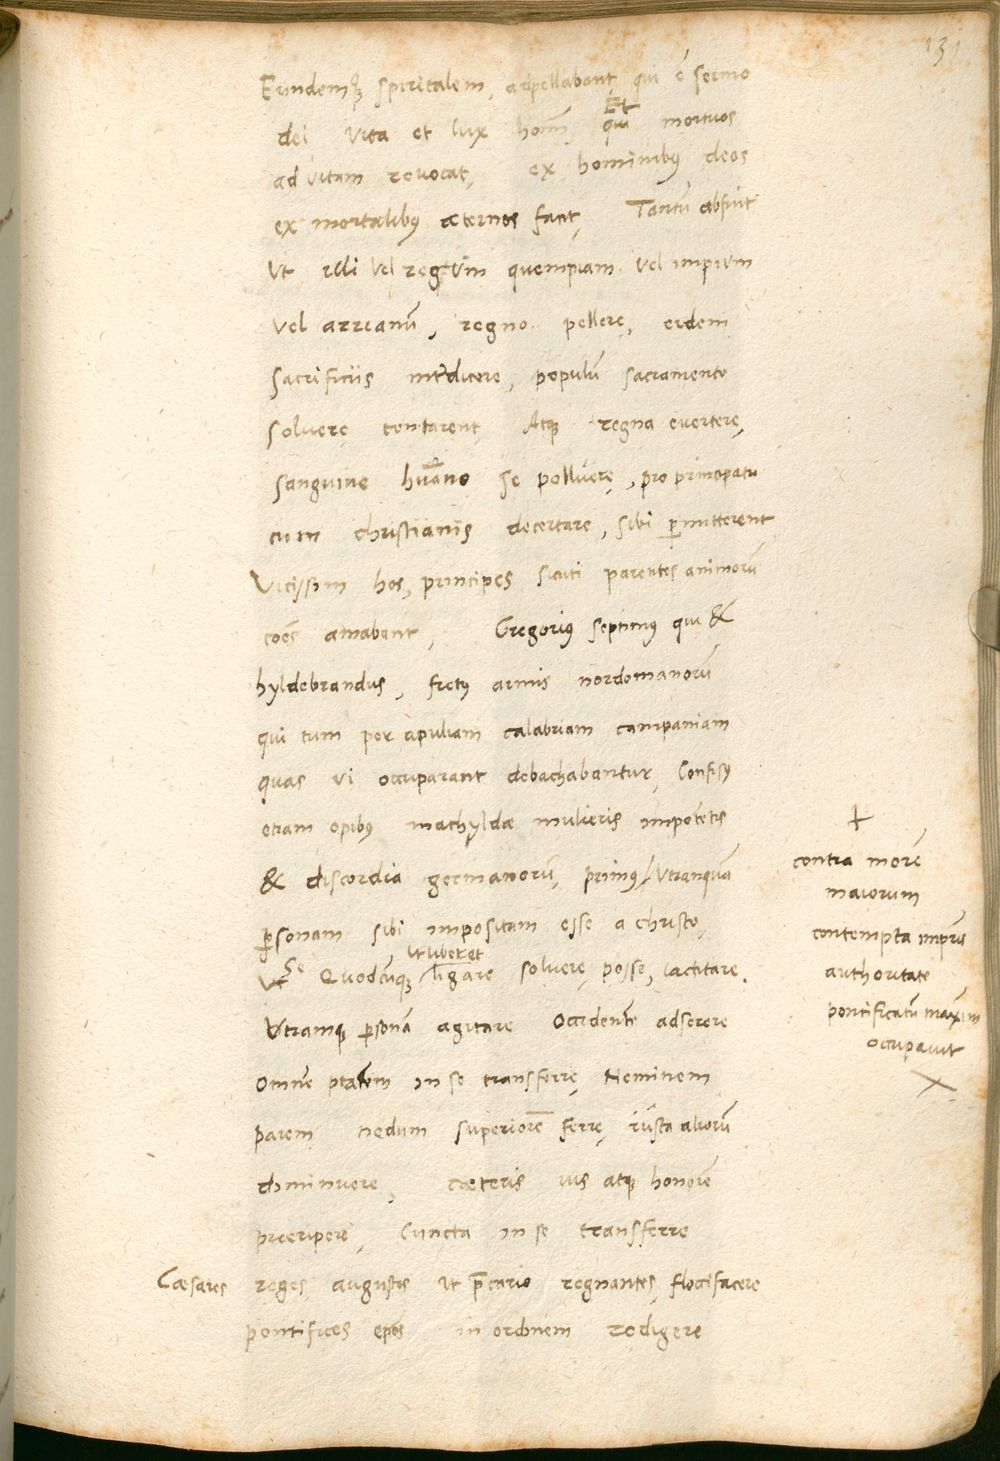 131
Eundemq; spiritalem, adpellabant, qui ē sermo
dei vita et lux homī, Et qui mortuos
ad vitam revocat, ex hominibus deos
ex mortalibus æternos facit, Tantū absuit
Ut illi vel regum quempiam vel impium
vel arrianū, regno pellere, eidem
sacrificiis interdicere, populū sacramento
solvere tentarent, Atque regna evertere,
sanguine huāno se polluere, pro principatu
cum christianis decertare, sibi permitterent
Vicissim hos, principes sicuti parentes animorū
coēs amabant, Gregorius septimus qui &
hyldebrandus, fretus armis nordomanorū
qui tum per apuliam calabriam campaniam
quas vi occuparant debachabantur, Confisus
etiam opibus mathyldæ mulieris impotētis
& discordia germanorū, primus Utranquā
personam sibi impositam esse a christo,
Ut se Quodcūque ut luberet ligare solvere, posse, iactitare.
Utramque personā agitare Occidentē adserere
Omnē ptatem in se transferre, Neminem
parem nedum superiorē ferre, iusta aliorū
diminuere, cæteris ius atque honorē
præripere, Cuncta in se transferre
Cæsares reges augustos ut p̄cario regnantes, floccifacere
pontifices epōs in ordinem redigere
+
contra morē
maiorum
contempta impriis
authoritate
pontificatū maxim
occupavit
×